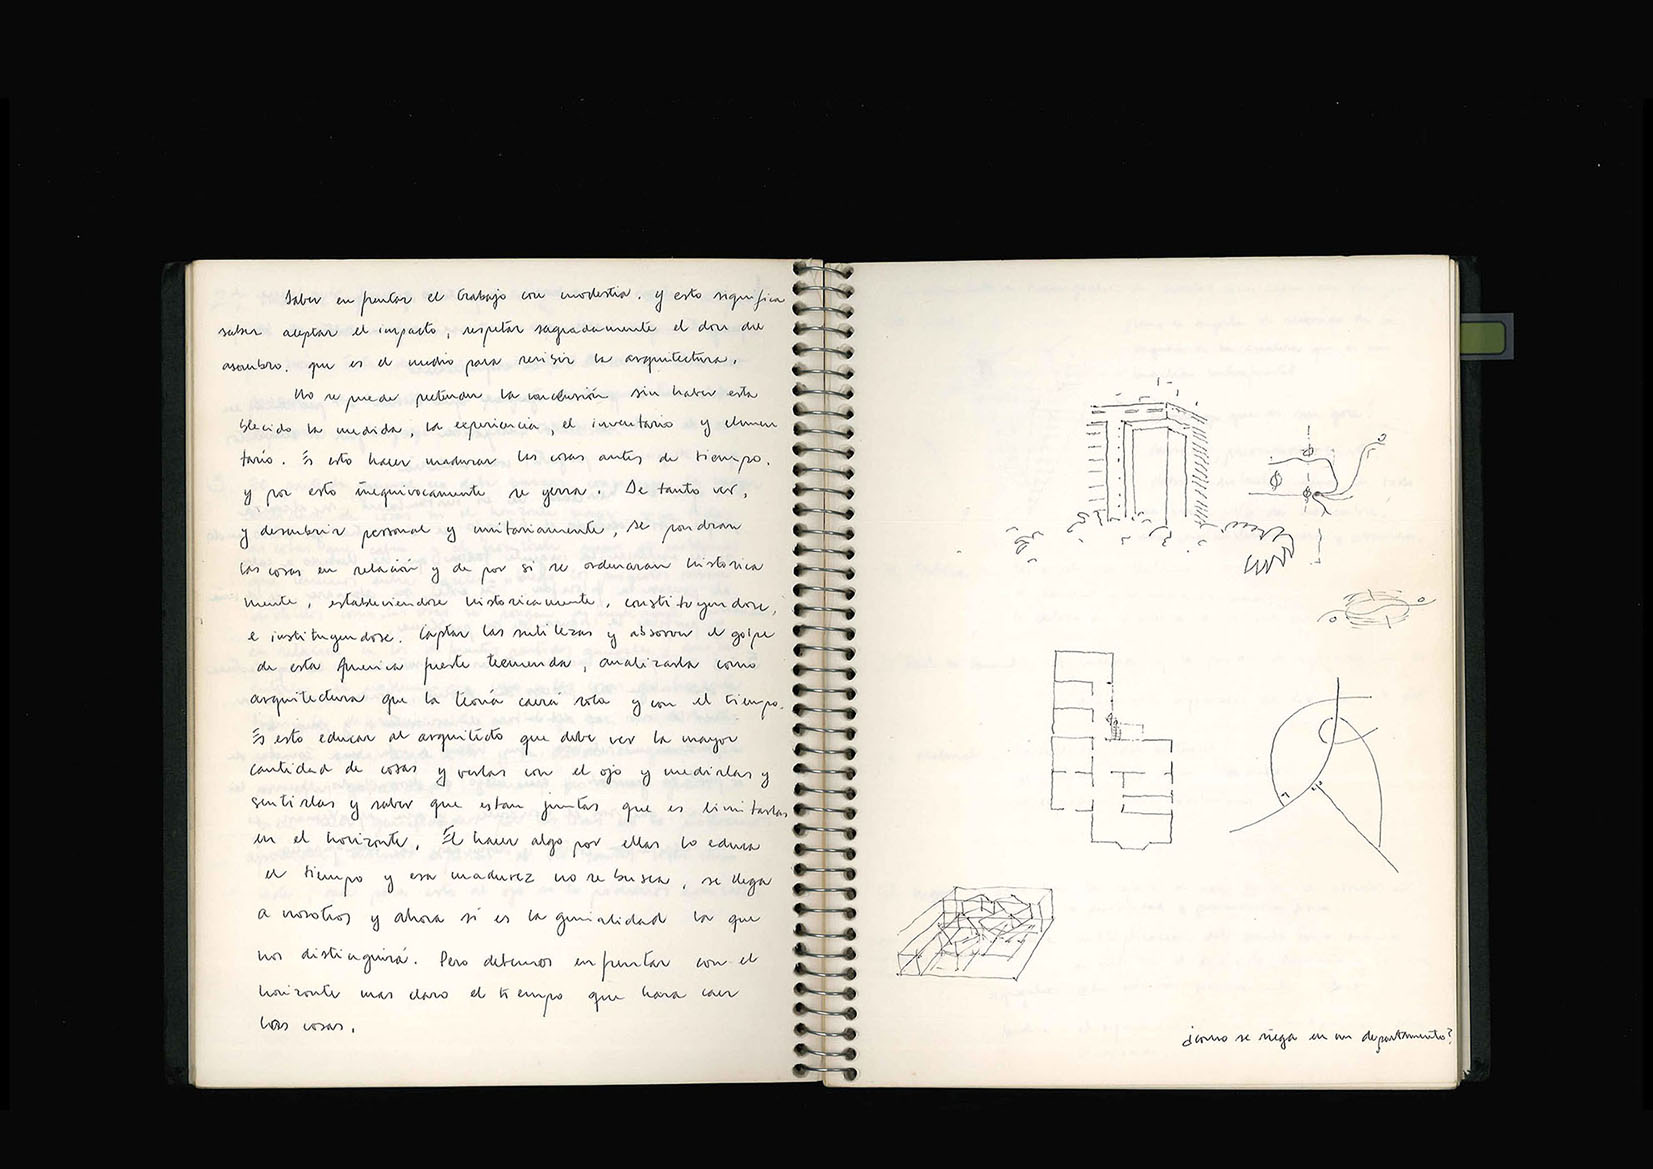 Saber enfrentar el trabajo con modestia. y esto significa
saber aceptar el impacto, respetar sagradamente el don del
asombro. que es el medio para recibir la arquitectura.
No se puede pretender la conclusión sin haber esta
blecido la medida, la experiencia, el inventario y elemen
tario. És esto hacer madurar las cosas antes de tiempo.
y por esto inequivocamente se yerra. De tanto ver,
y descubrir personal y unitariamente, se pondran
las cosas en relación y de por si se ordenaran historica
mente, estableciendose historicamente, constituyendose,
e instituyendose. Captar las sutilezas y absorver el golpe
de esta America fuerte tremenda, analizarla como
arquitectura que la teoría caerá sola y con el tiempo.
És esto educar al arquitecto que debe ver la mayor
cantidad de cosas y verlas con el ojo y medirlas y
sentirlas y saber que estan juntas que es limitarlas
en el horizonte. Él hacer algo por ellas lo educa
el tiempo y esa madurez no se busca, se llega
a nosotros y ahora sí es la genialidad la que
nos distinguirá. Pero debemos enfrentar con el
horizonte mas claro el tiempo que hara caer
las cosas.
¿como se riega en un departamento?